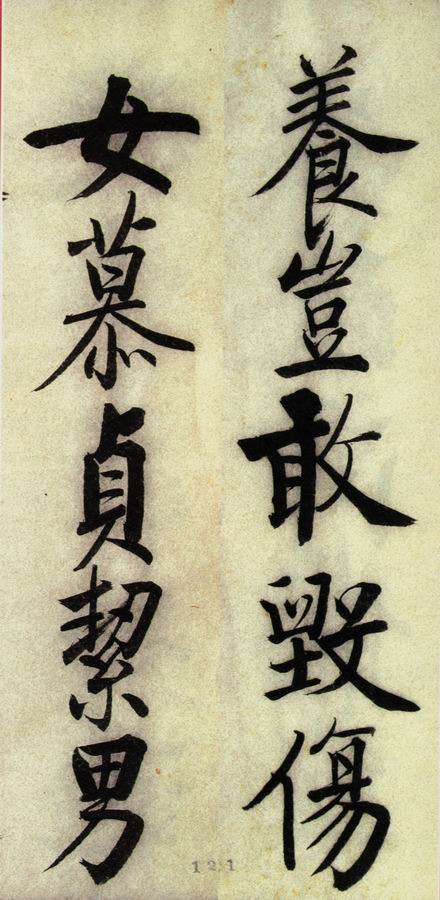 養豈敢毀傷
女慕貞絜男
121